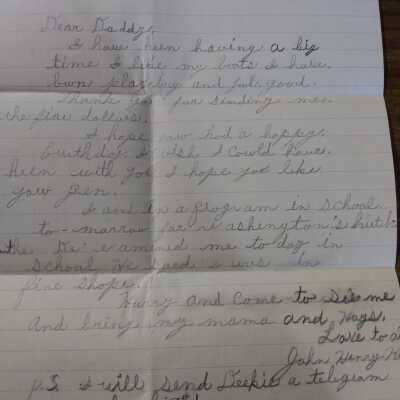 Dear Daddy,
I have been having a big
time I like my boots I have
been playing and feel good.
Thank you for sending me
the five dollars.
I hope you had a happy
birthday I wish I could have
been with you I hope you like
your pen.
I am in a program in school
to-morrow for Washington's birth
the Dr. examined me to day in
school He said I was in
fine shape.
Hurry and come to see me
and bring my mama and
Love to
John Henry
P.S. I will send Deekie a telegram